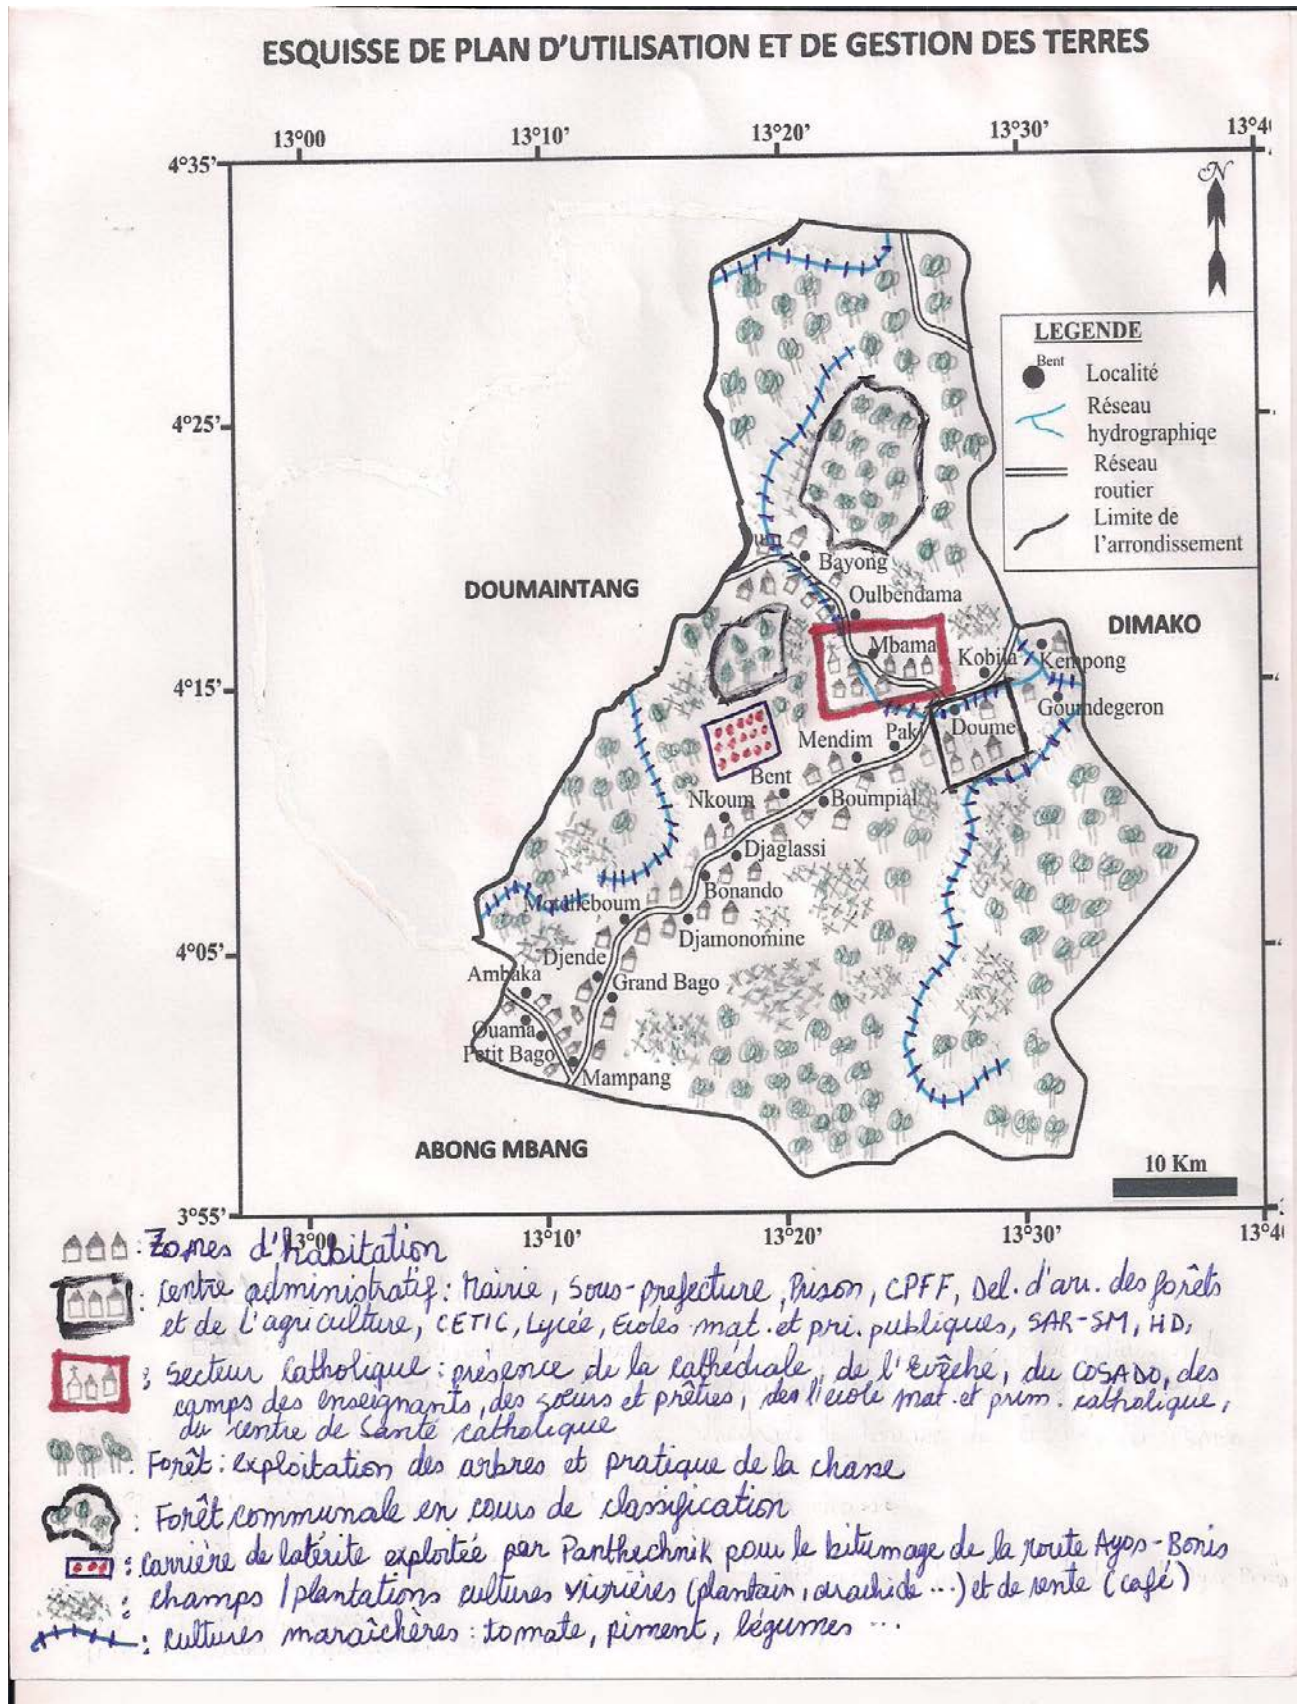 ESQUISSE DE PLAN D'UTILISATION ET DE GESTION DES TERRES
13°00 13°10' 13°20' 13°30' 13°40
4°35'
N
LEGENDE
Bent Localité
Réseau
hydrographiqe
Réseau
routier
Limite de
l'arrondissement
4°25'
Bayong
DOUMAINTANG
Oulbendama
DIMAKO
Mbama
Kobila
Kempong
4°15'
Goumdegeron
Doume
Paki
Mendim
Bent
Boumpial
Nkoum
Djaglassi
Bonando
Djamonomine
4°05'
Djende
Ambaka
Grand Bago
Ouama
Petit Bago
Mampang
ABONG MBANG
10 Km
3°55'
13°00 13°10' 13°20' 13°30' 13°40
: Zones d'habitation
: centre administratif : Mairie, Sous-prefecture, Prison, CPFF, Del. d'arr. des forêts
et de l'agriculture, CETIC, Lycée, Ecoles mat. et pri. publiques, SAR-SM, HD,
: Secteur Catholique : présence de la cathédrale, de l'Evêché, du COSADO, des
camps des enseignants, des sœurs et prêtres, de l'école mat. et prim. catholique,
du centre de Santé catholique
: Forêt : exploitation des arbres et pratique de la chasse
: Forêt communale en cours de classification
: Carrière de latérite exploitée par Panthechnik pour le bitumage de la route Ayos-Bonis
: champs / plantations cultures vivrières (plantain, arachide ...) et de rente (café)
: cultures maraîchères : tomate, piment, légumes ...